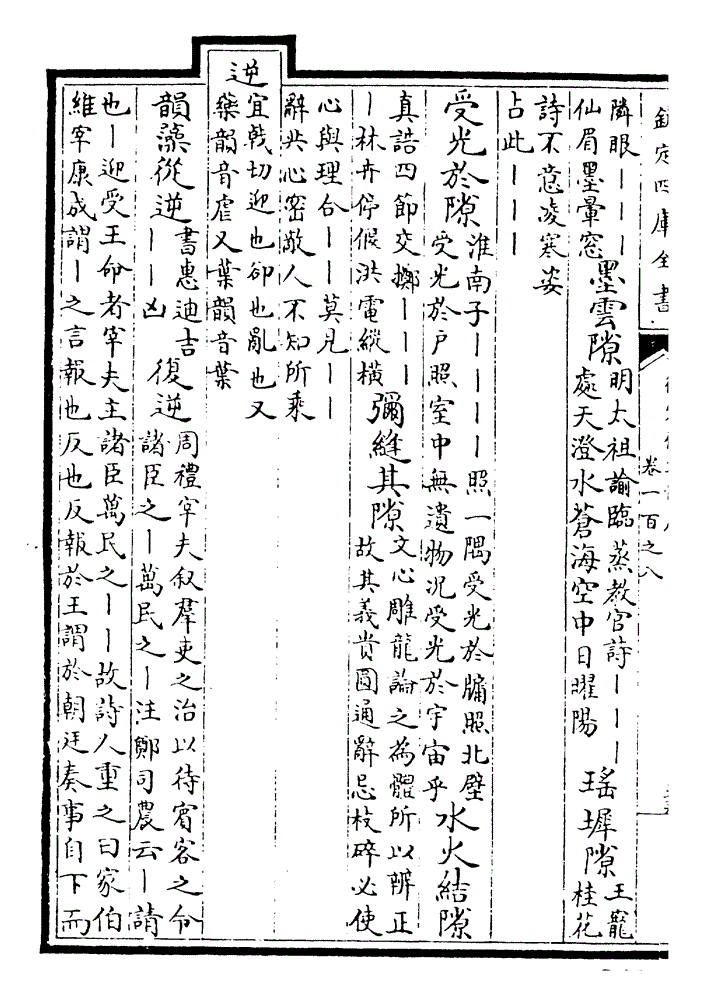 欽定四庫全書
卷一百之八
隣眼丨丨丨
仙眉墨暈窓
墨雲隙
明太祖諭臨蒸教官詩丨丨丨
處天澄水蒼海空中日曜陽
瑤墀隙
王寵
桂花
詩不意凌寒姿
占此丨丨丨
受光於隙
淮南子丨丨丨丨照一隅受光於牖照北壁
受光於戶照室中無遺物况受光於宇宙乎
水火結隙
真誥四節交擲丨丨丨
丨林卉停假洪電縱橫
彌縫其隙
文心雕龍論之為體所以辨正
故其義貴圓通辭忌枝碎必使
心與理合丨丨莫見丨丨
辭共心密敵人不知所乘
逆
宜戟切迎也卻也亂也又
藥韻音虐又葉韻音葉
韻藻從逆
書惠迪吉
丨丨凶
復逆
周禮宰夫叙羣吏之治以待賓客之令
諸臣之丨萬民之丨注鄭司農云丨請
也丨迎受王命者宰夫主諸臣萬民之丨丨故詩人重之曰家伯
維宰康成謂丨之言報也反也反報於王謂於朝廷奏事自下而